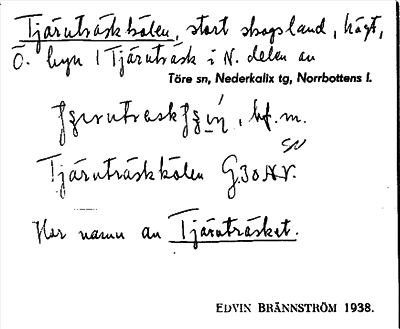 Tjäruträskkölen, stort skogsland, högt,
Ö. byn 1 Tjäruträsk i N. delen av
Töre sn, Nederkalix tg, Norrbottens l.
bf. m.
Tjäruträskkölen G.30 AV.
SV
Har namn av Tjäruträsket.
EDVIN BRÄNNSTRÖM 1938.